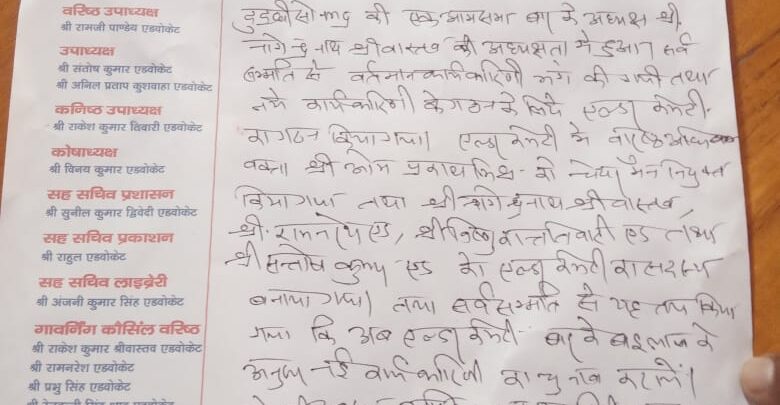 वरिष्ठ उपाध्यक्ष
श्री रामजी पाण्डेय एडवोकेट
उपाध्यक्ष
श्री संतोष कुमार एडवोकेट
श्री अनिल प्रताप कुशवाहा एडवोकेट
कनिष्ठ उपाध्यक्ष
श्री राकेश कुमार तिवारी एडवोकेट
कोषाध्यक्ष
श्री विनय कुमार एडवोकेट
सह सचिव प्रशासन
श्री सुनील कुमार द्विवेदी एडवोकेट
सह सचिव प्रकाशन
श्री राहुल एडवोकेट
सह सचिव लाइब्रेरी
श्री अंजनी कुमार सिंह एडवोकेट
गावर्निंग कौंसिल वरिष्ठ
श्री राकेश कुमार श्रीवास्तव एडवोकेट
श्री रामनरेश एडवोकेट
श्री प्रभु सिंह एडवोकेट
की एक आमसभा बार के अध्यक्ष श्री
नागेन्द्र नाथ श्रीवास्तव की अध्यक्षता में हुआ। सर्व
सम्मति से वर्तमान कार्यकारिणी भंग की गयी तथा
नये कार्यकारिणी के गठन के लिये एल्डर कमेटी
का गठन किया गया। एल्डर कमेटी के वरिष्ठ
वक्ता श्री ओम प्रकाश मिश्र को चेयरमैन नियुक्त
किया गया तथा श्री नागेन्द्र नाथ श्रीवास्तव,
श्री एड, श्री विष्णु कान्त तिवारी एड तथा
श्री सन्तोष कुमार एड को एल्डर कमेटी का सदस्य
बनाया गया। तथा सर्वसम्मति से यह तय किया
गया कि अब एल्डर कमेटी बार के बाइलाज के
अनुरूप नई कार्यकारिणी का चुनाव कराले।